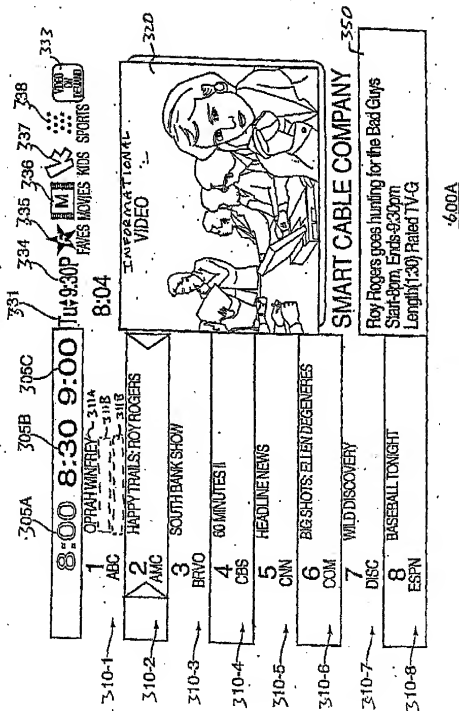 305A 305B 305C 331 334 335 336 337 338 333
8:00 8:30 9:00 Tu 9:30P FAVES MOVIES KIDS SPORTS VIDEO ON DEMAND
8:04
310-1 1 ABC OPRAH WINFREY 311A
311B
310-2 2 AMC HAPPY TRAILS: ROY ROGERS 311B
310-3 3 BRVO SOUTH BANK SHOW
310-4 4 CBS 60 MINUTES II
310-5 5 CNN HEADLINE NEWS
310-6 6 COM BIG SHOTS: ELLEN DEGENERES
310-7 7 DISC WILD DISCOVERY
310-8 8 ESPN BASEBALL TONIGHT
INFORMATIONAL
VIDEO
320
SMART CABLE COMPANY
350
Roy Rogers goes hunting for the Bad Guys
Start-8pm, Ends-9:30pm
Length(1:30) Rated TV-G
600A